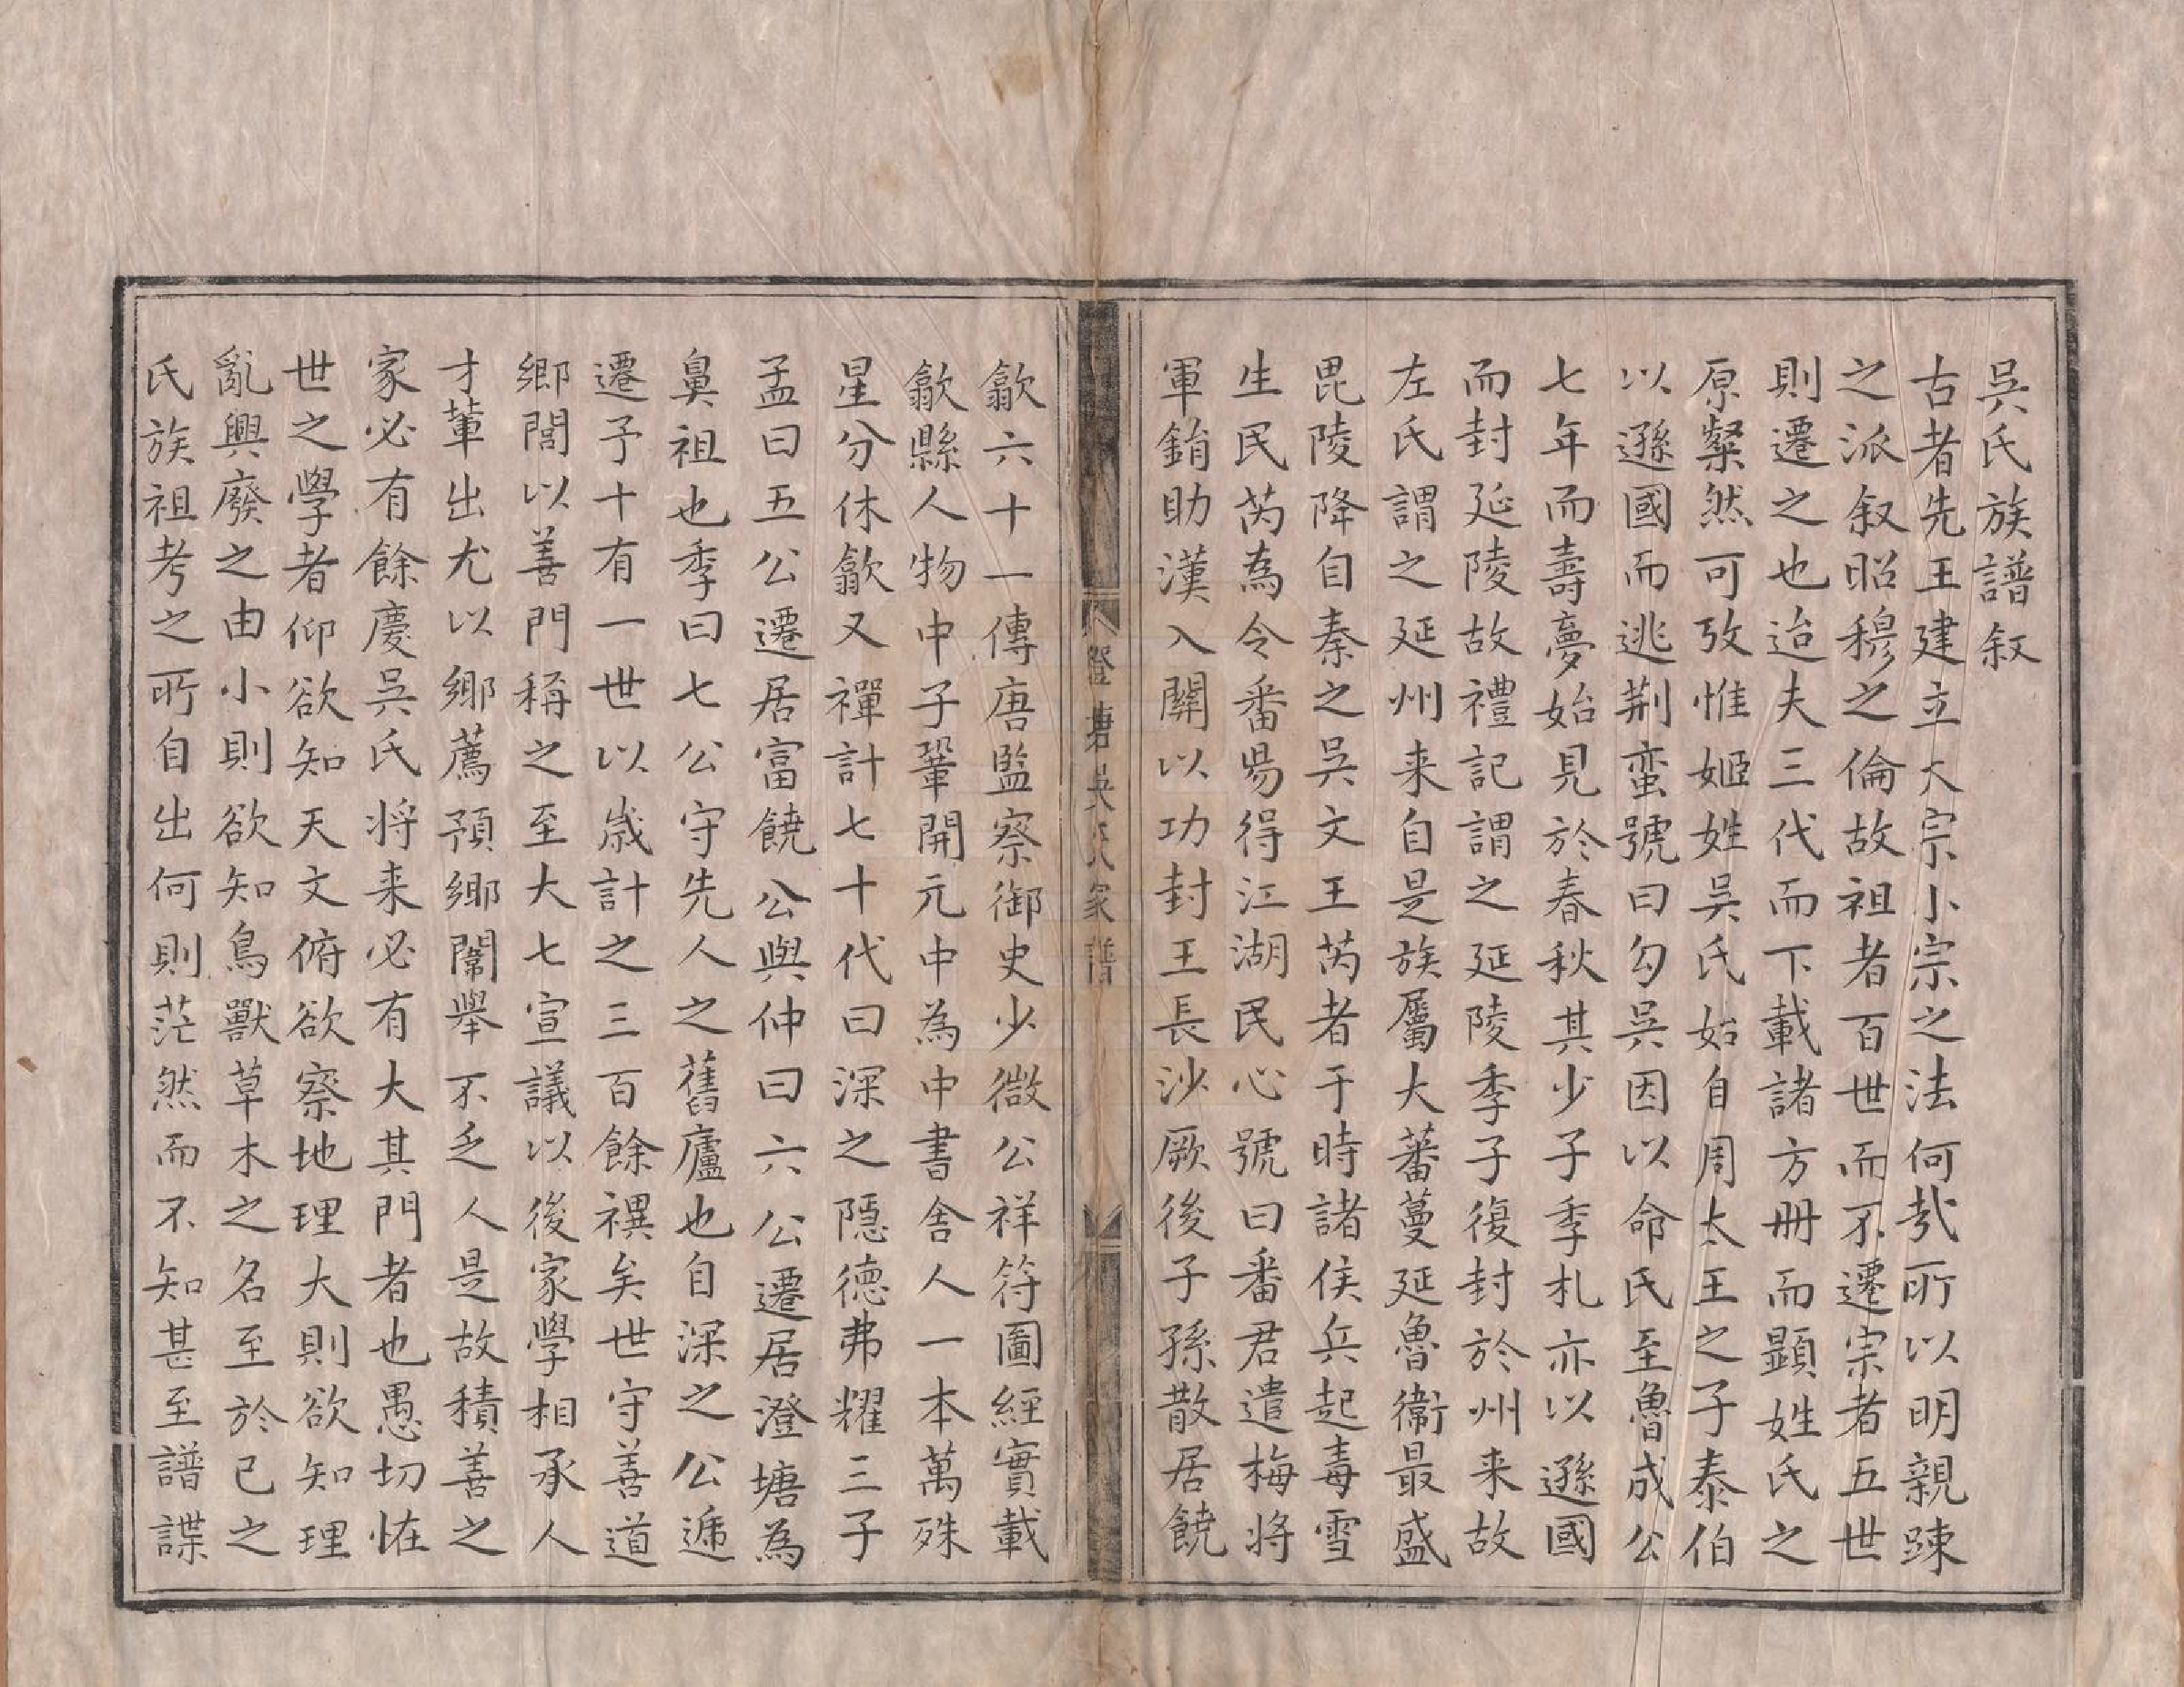 吳氏族譜叙
古者先王建立大宗小宗之法何㢤所以明親踈
之派叙昭穆之倫故祖者百世而不遷宗者五世
則遷之也迨夫三代而下載諸方冊而顯姓氏之
原粲然可攷惟姬姓吳氏始自周太王之子泰伯
以遜國而逃荆蛮號曰勾吳因以命氏至魯成公
七年而壽夢始見於春秋其少子季札亦以遜國
而封延陵故禮記謂之延陵季子復封於州来故
左氏謂之延州来自是族屬大蕃蔓延魯衞最盛
毘陵降自秦之吳文王芮者于時諸侯兵起毒雪
生民芮為令番昜得江湖民心號曰番君遣梅将
軍鋗助漢入關以功封王長沙厥後子孫散居饒
澄塘吳氏家譜
歙六十一傳唐監察御史少微公祥符圖經實載
歙縣人物中子鞏開元中為中書舍人一本萬殊
星分休歙又禪計七十代曰深之隱德弗耀三子
孟曰五公遷居富饒公與仲曰六公遷居澄塘為
鼻祖也季曰七公守先人之舊廬也自深之公遞
遷予十有一世以歲計之三百餘禩矣世守善道
鄉閭以善門稱之至大七宣議以後家學相承人
才軰出尤以鄉薦預鄉闈舉不乏人是故積善之
家必有餘慶吳氏将来必有大其門者也愚切恠
世之學者仰欲知天文俯欲察地理大則欲知理
亂興廢之由小則欲知鳥獸草木之名至於已之
氏族祖考之所自出何則茫然而不知甚至譜諜